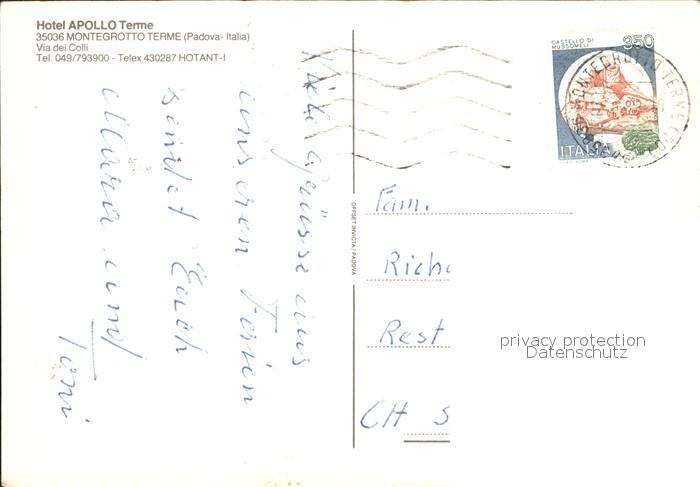 Hotel APOLLO Terme
35036 MONTEGROTTO TERME (Padova- Italia)
Via dei Colli
Tel. 049/793900 - Telex 430287 HOTANT-I
Viele Grüsse aus
unseren Ferien
sendet Euch
Maria und
Toni
OFFSET INVICTA / PADOVA
CASTELLO DI
MUSSOMELI
350
ITALIA
MONTEGROTTO TERME
Fam.
Rich
Rest
CH S
privacy protection
Datenschutz